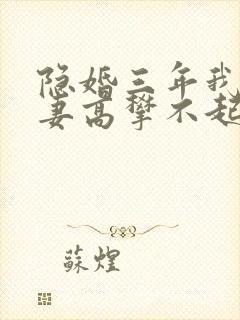 隐婚三年我
妻高攀不起
蘇煌